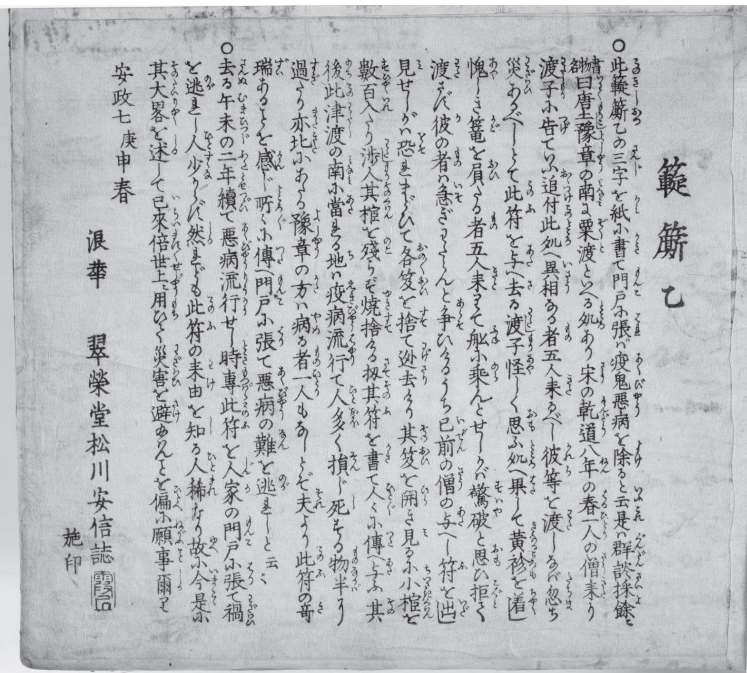 簸簛乙
○此簸簛乙の三字を紙小書て門戸小張バ疫鬼悪病を除ると云是ハ群談採餘と
書物曰唐土豫章の南に粟渡といふ処あり宋の乾道八年の春一人の僧来り
渡子小告ていふ追付此処へ異相なる者五人来るべし彼等を渡しなバ忽ち
災あるべしとて此符を与へ去る渡子怪しく思ふ処へ果して黄衫を着し
愧しき篭を肩たる者五人来りて舩小乗んとせしかバ驚破と思ひ拒て
渡さず彼の者ハ急ぎわたらんと争ひけるうち已前の僧の与へし符を出し
見せしかバ恐れまどひて各笈を捨て逊去けり其笈を開き見る小小棺を
數百入たり渉人其棺を残らず焼捨る扨其符を書て人々小傳しとぞ其
後此津渡の南小當れる地ハ疫病流行て人多く損じ死する物半を
過たり亦北小あたる豫章の方ハ病る者一人もなしとぞ夫より此符の奇
瑞あることを感じ所々小傳へ門戸小張て悪病の難を逃れしと云々
○去る午未の二年續て悪病流行せし時専此符を人家の門戸小張て禍
を逃れし人少からず然れども此符の来由を知る人稀なり故小今是小
其大畧を述して已來倍世上に用ひて災害を避あらんことを偏小願事爾り
安政七庚申春
浪華 翠榮堂松川安信誌
施印